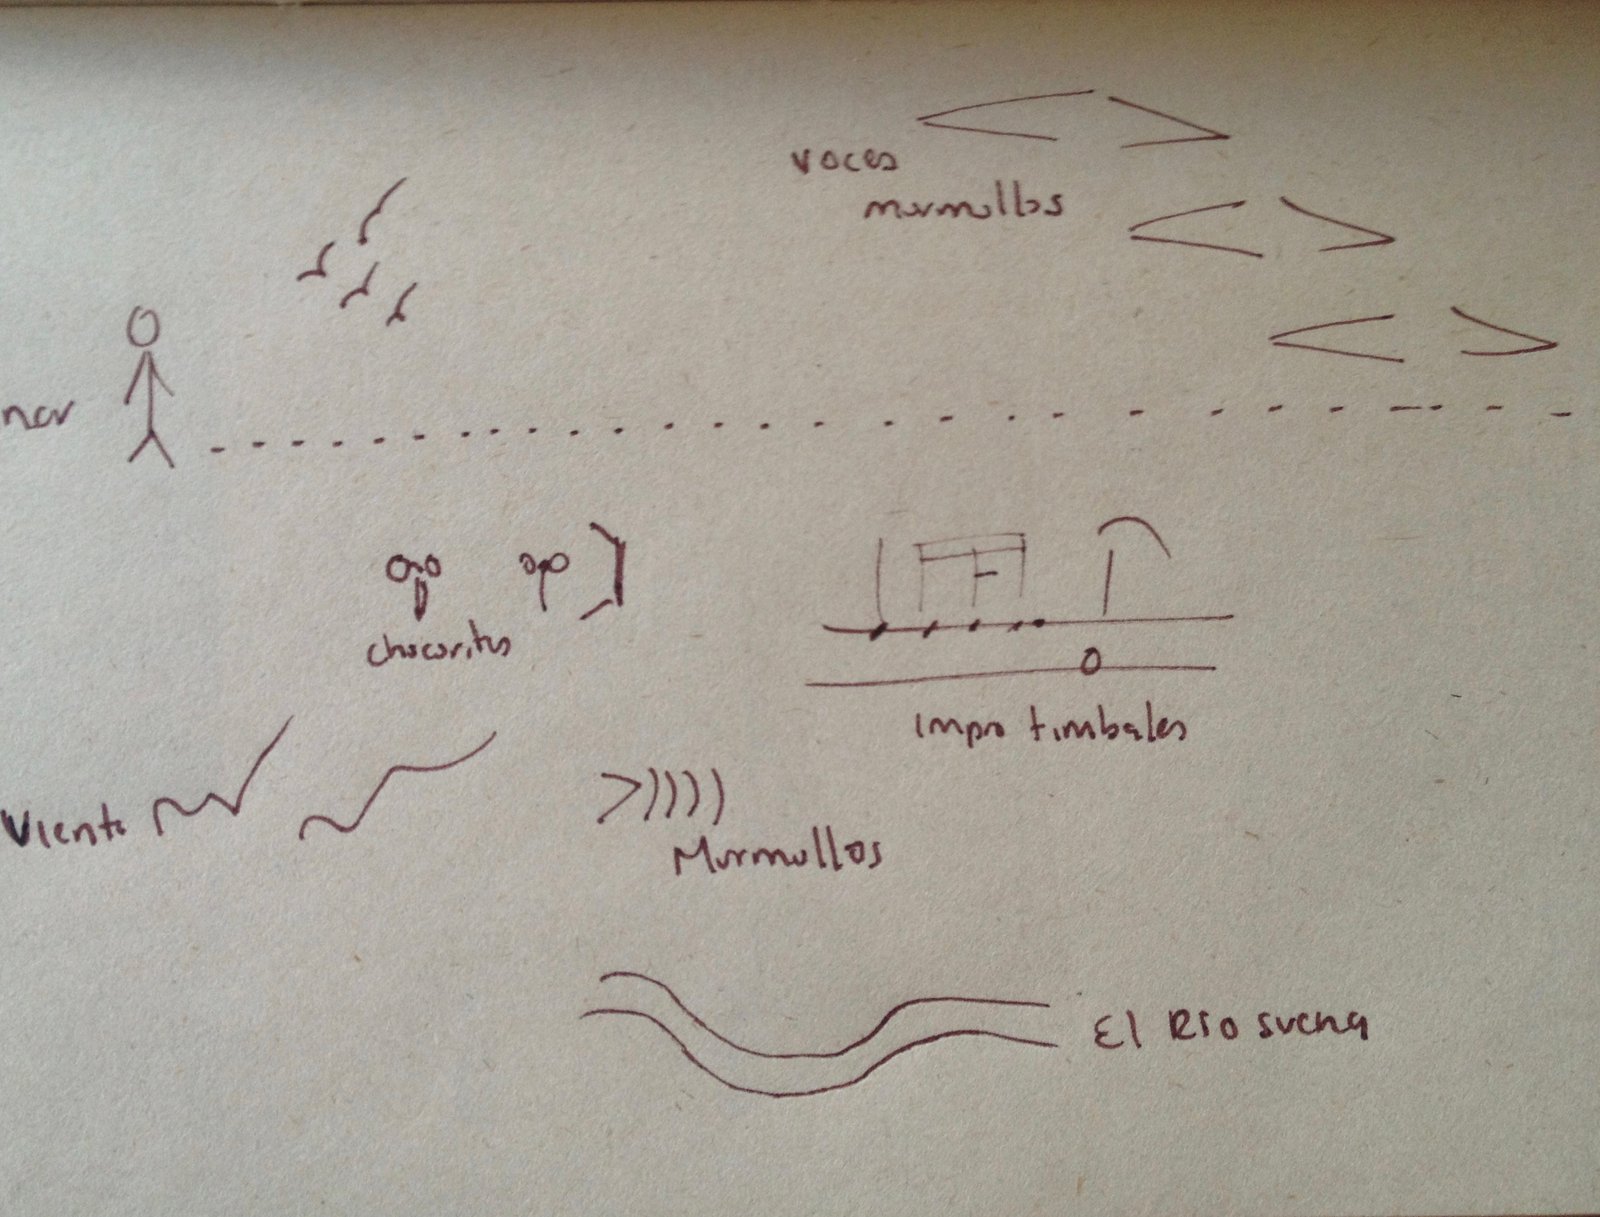 voces
murmullos
nar
chucaritus
Impro timbales
Viento
Murmullos
El Río suena